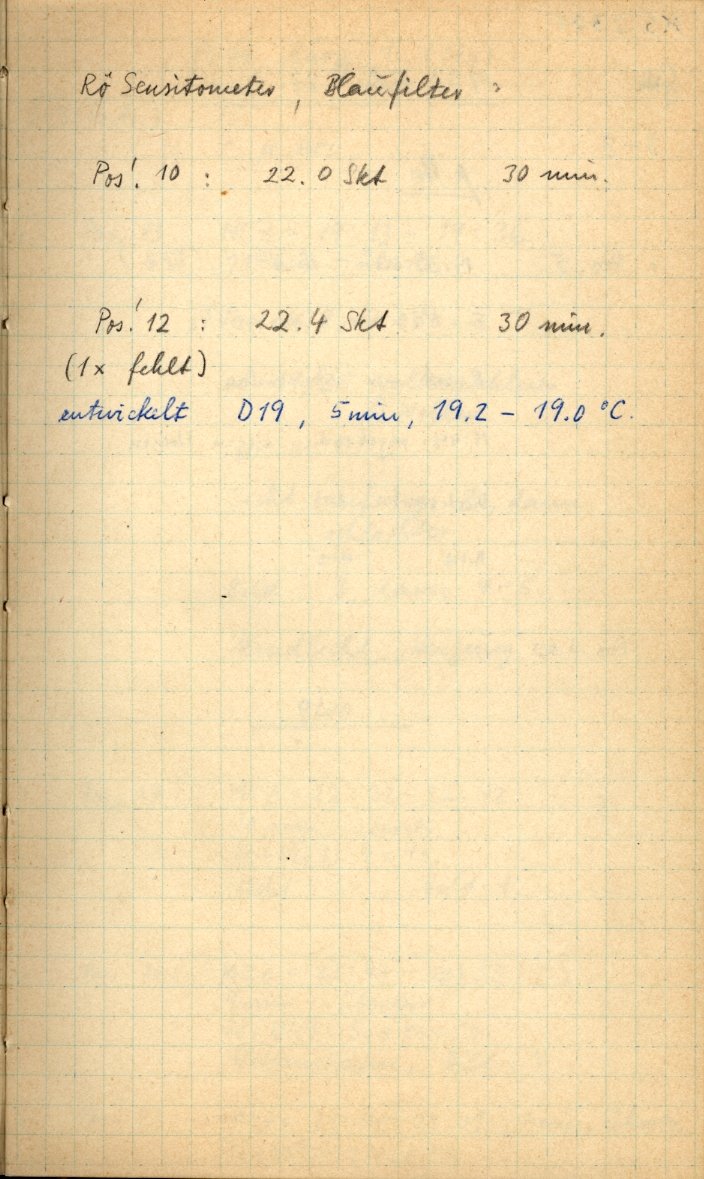 Rö Sensitometer, Blaufilter:
Pos. 10 : 22.0 Skt 30 min.
Pos. 12 : 22.4 Skt 30 min.
(1x fehlt)
entwickelt D19, 5 min, 19.2 – 19.0 °C.